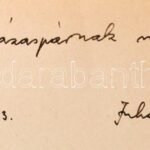 házaspárnak
darabanth
3. Juhá